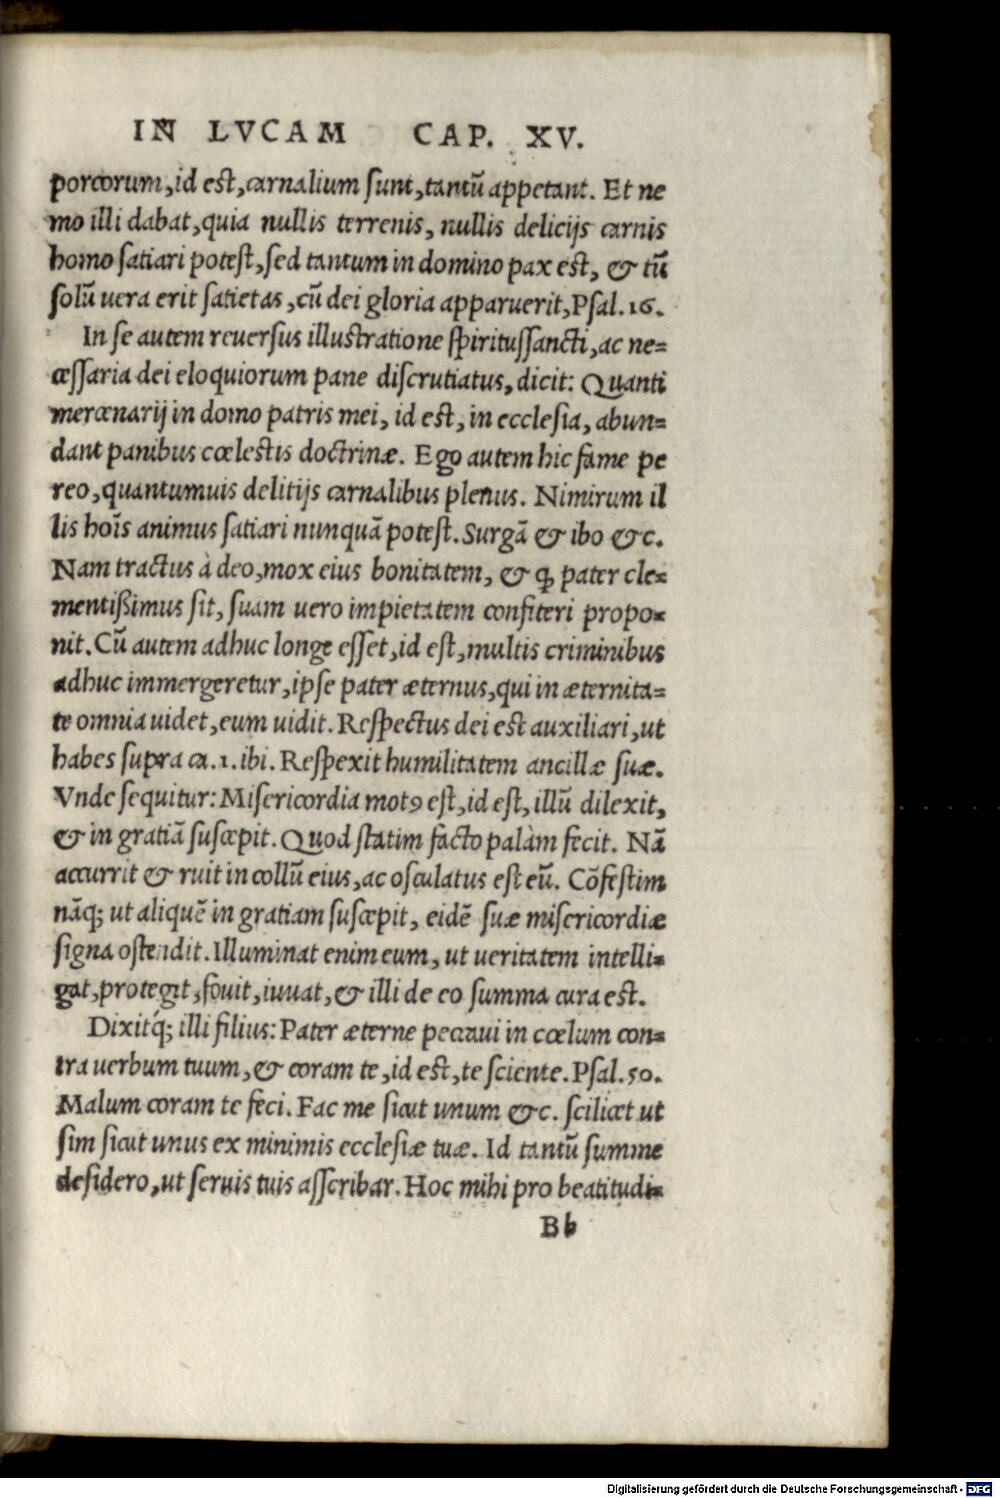 IN LVCAM CAP. XV.
porcorum, id est, carnalium sunt, tantũ appetant. Et ne
mo illi dabat, quia nullis terrenis, nullis delicijs carnis
homo satiari potest, sed tantum in domino pax est, & tũ
solũ uera erit satietas, cũ dei gloria apparuerit, Psal. 16.
In se autem reuersus illustratione spiritussancti, ac ne=
cessaria dei eloquiorum pane discrutiatus, dicit: Quanti
mercenarij in domo patris mei, id est, in ecclesia, abun=
dant panibus cœlestis doctrinæ. Ego autem hic fame pe
reo, quantumuis delitijs carnalibus plenus. Nimirum il
lis hoĩs animus satiari nunquã potest. Surgã & ibo &c.
Nam tractus à deo, mox eius bonitatem, & ꝙ pater cle=
mentißimus sit, suam uero impietatem confiteri propo=
nit. Cũ autem adhuc longe esset, id est, multis criminibus
adhuc immergeretur, ipse pater æternus, qui in æternita=
te omnia uidet, eum uidit. Respectus dei est auxiliari, ut
habes supra ca. 1. ibi. Respexit humilitatem ancillæ suæ.
Vnde sequitur: Misericordia motꝯ est, id est, illũ dilexit,
& in gratiã suscepit. Quod statim facto palàm fecit. Nã
accurrit & ruit in collũ eius, ac osculatus est eũ. Cõfestim
nãq; ut aliquẽ in gratiam suscepit, eidẽ suæ misericordiæ
signa ostendit. Illuminat enim eum, ut ueritatem intelli=
gat, protegit, fouit, iuuat, & illi de eo summa cura est.
Dixitq́; illi filius: Pater æterne peccaui in cœlum con=
tra uerbum tuum, & coram te, id est, te sciente. Psal. 50.
Malum coram te feci. Fac me sicut unum &c. scilicet ut
sim sicut unus ex minimis ecclesiæ tuæ. Id tantũ summe
desidero, ut seruis tuis asscribar. Hoc mihi pro beatitudi=
Bb
Digitalisierung gefördert durch die Deutsche Forschungsgemeinschaft - DFG